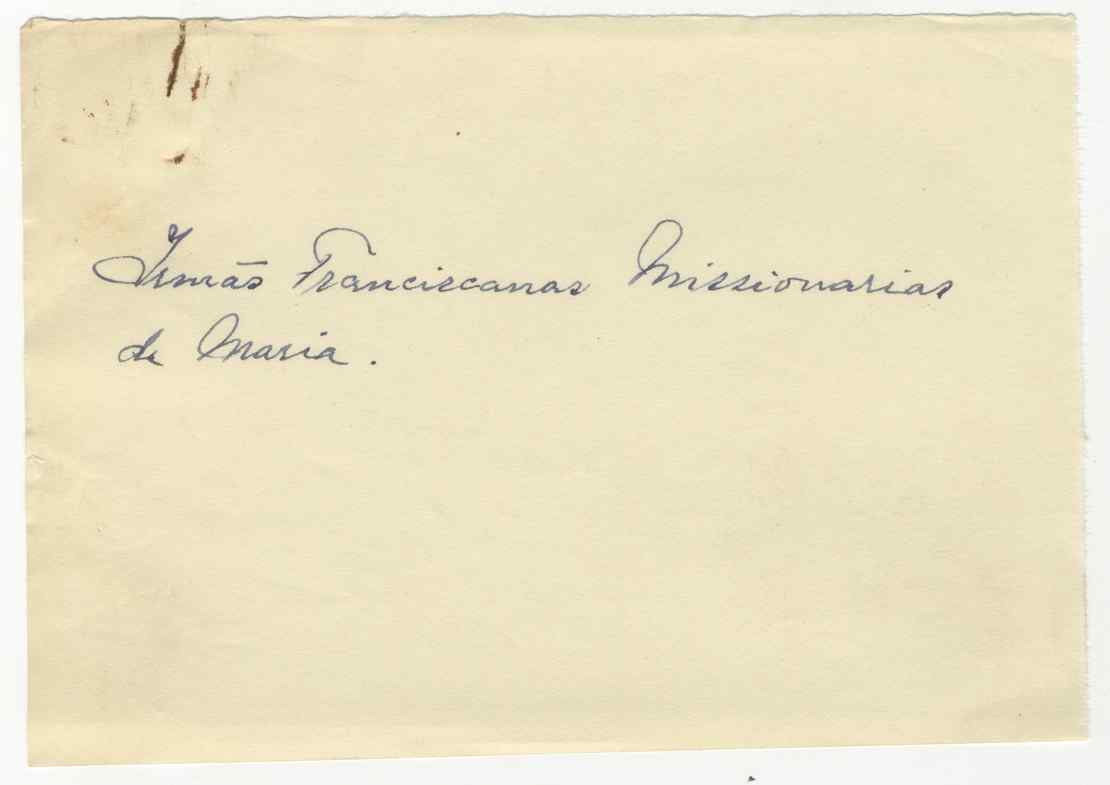 Irmãs Franciscanas Missionarias
de Maria.